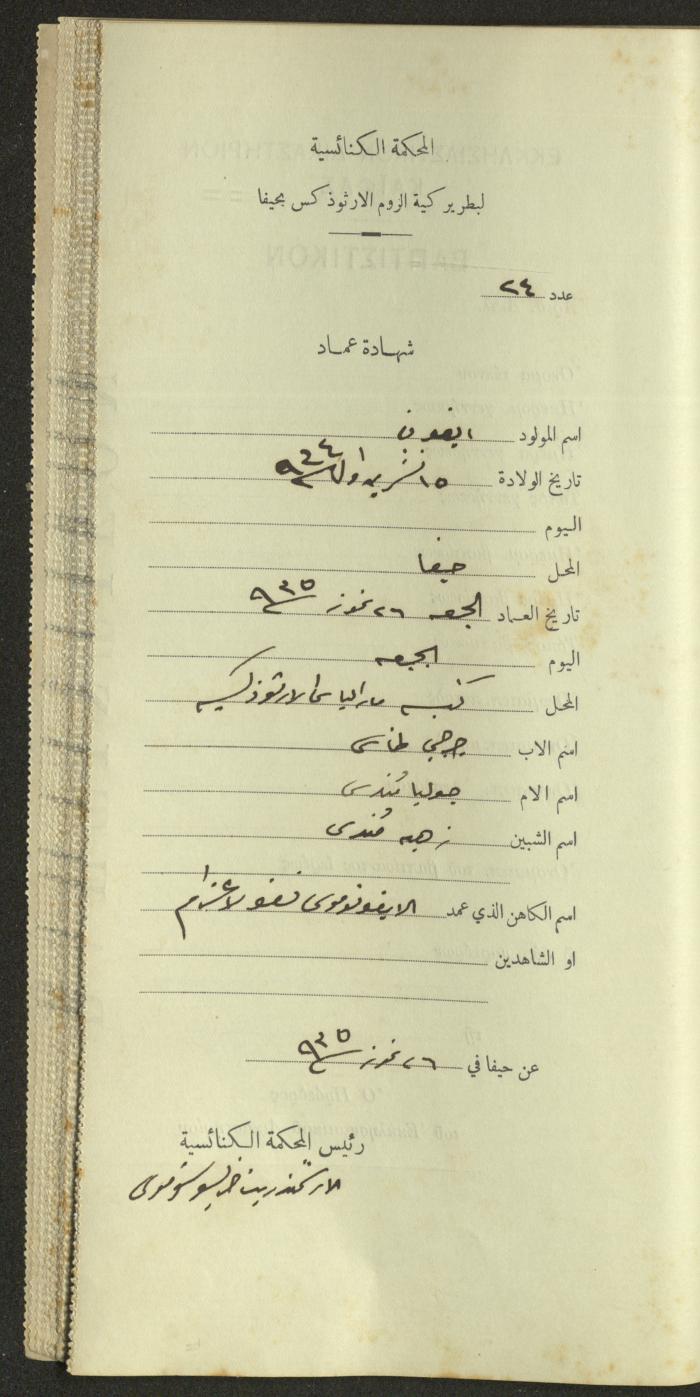 المحكمة الكنائسية
لبطريركية الروم الارثوذكس بحيفا
عدد ٢٤
شهادة عماد
اسم المولود ايفون
تاريخ الولادة ١٥ تشرين اول ٩٣٤
اليوم
المحل حيفا
تاريخ العماد الجمعه ٢٦ تموز ٩٣٥
اليوم الجمعه
المحل كنيسه مار الياس الارثوذكسيه
اسم الاب جرجي طناس
اسم الام جوليا
اسم الشبين زهيه
اسم الكاهن الذي عمد الايقونوموس
او الشاهدين
عن حيفا في ٢٦ تموز ٩٣٥
رئيس المحكمة الكنائسية
الارشمندريت